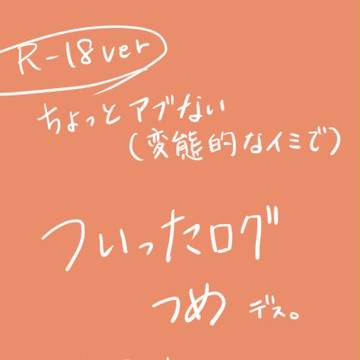 R-18ver
ちょっとアブない
(変態的なイミで)
ついったログ
つめ デス。